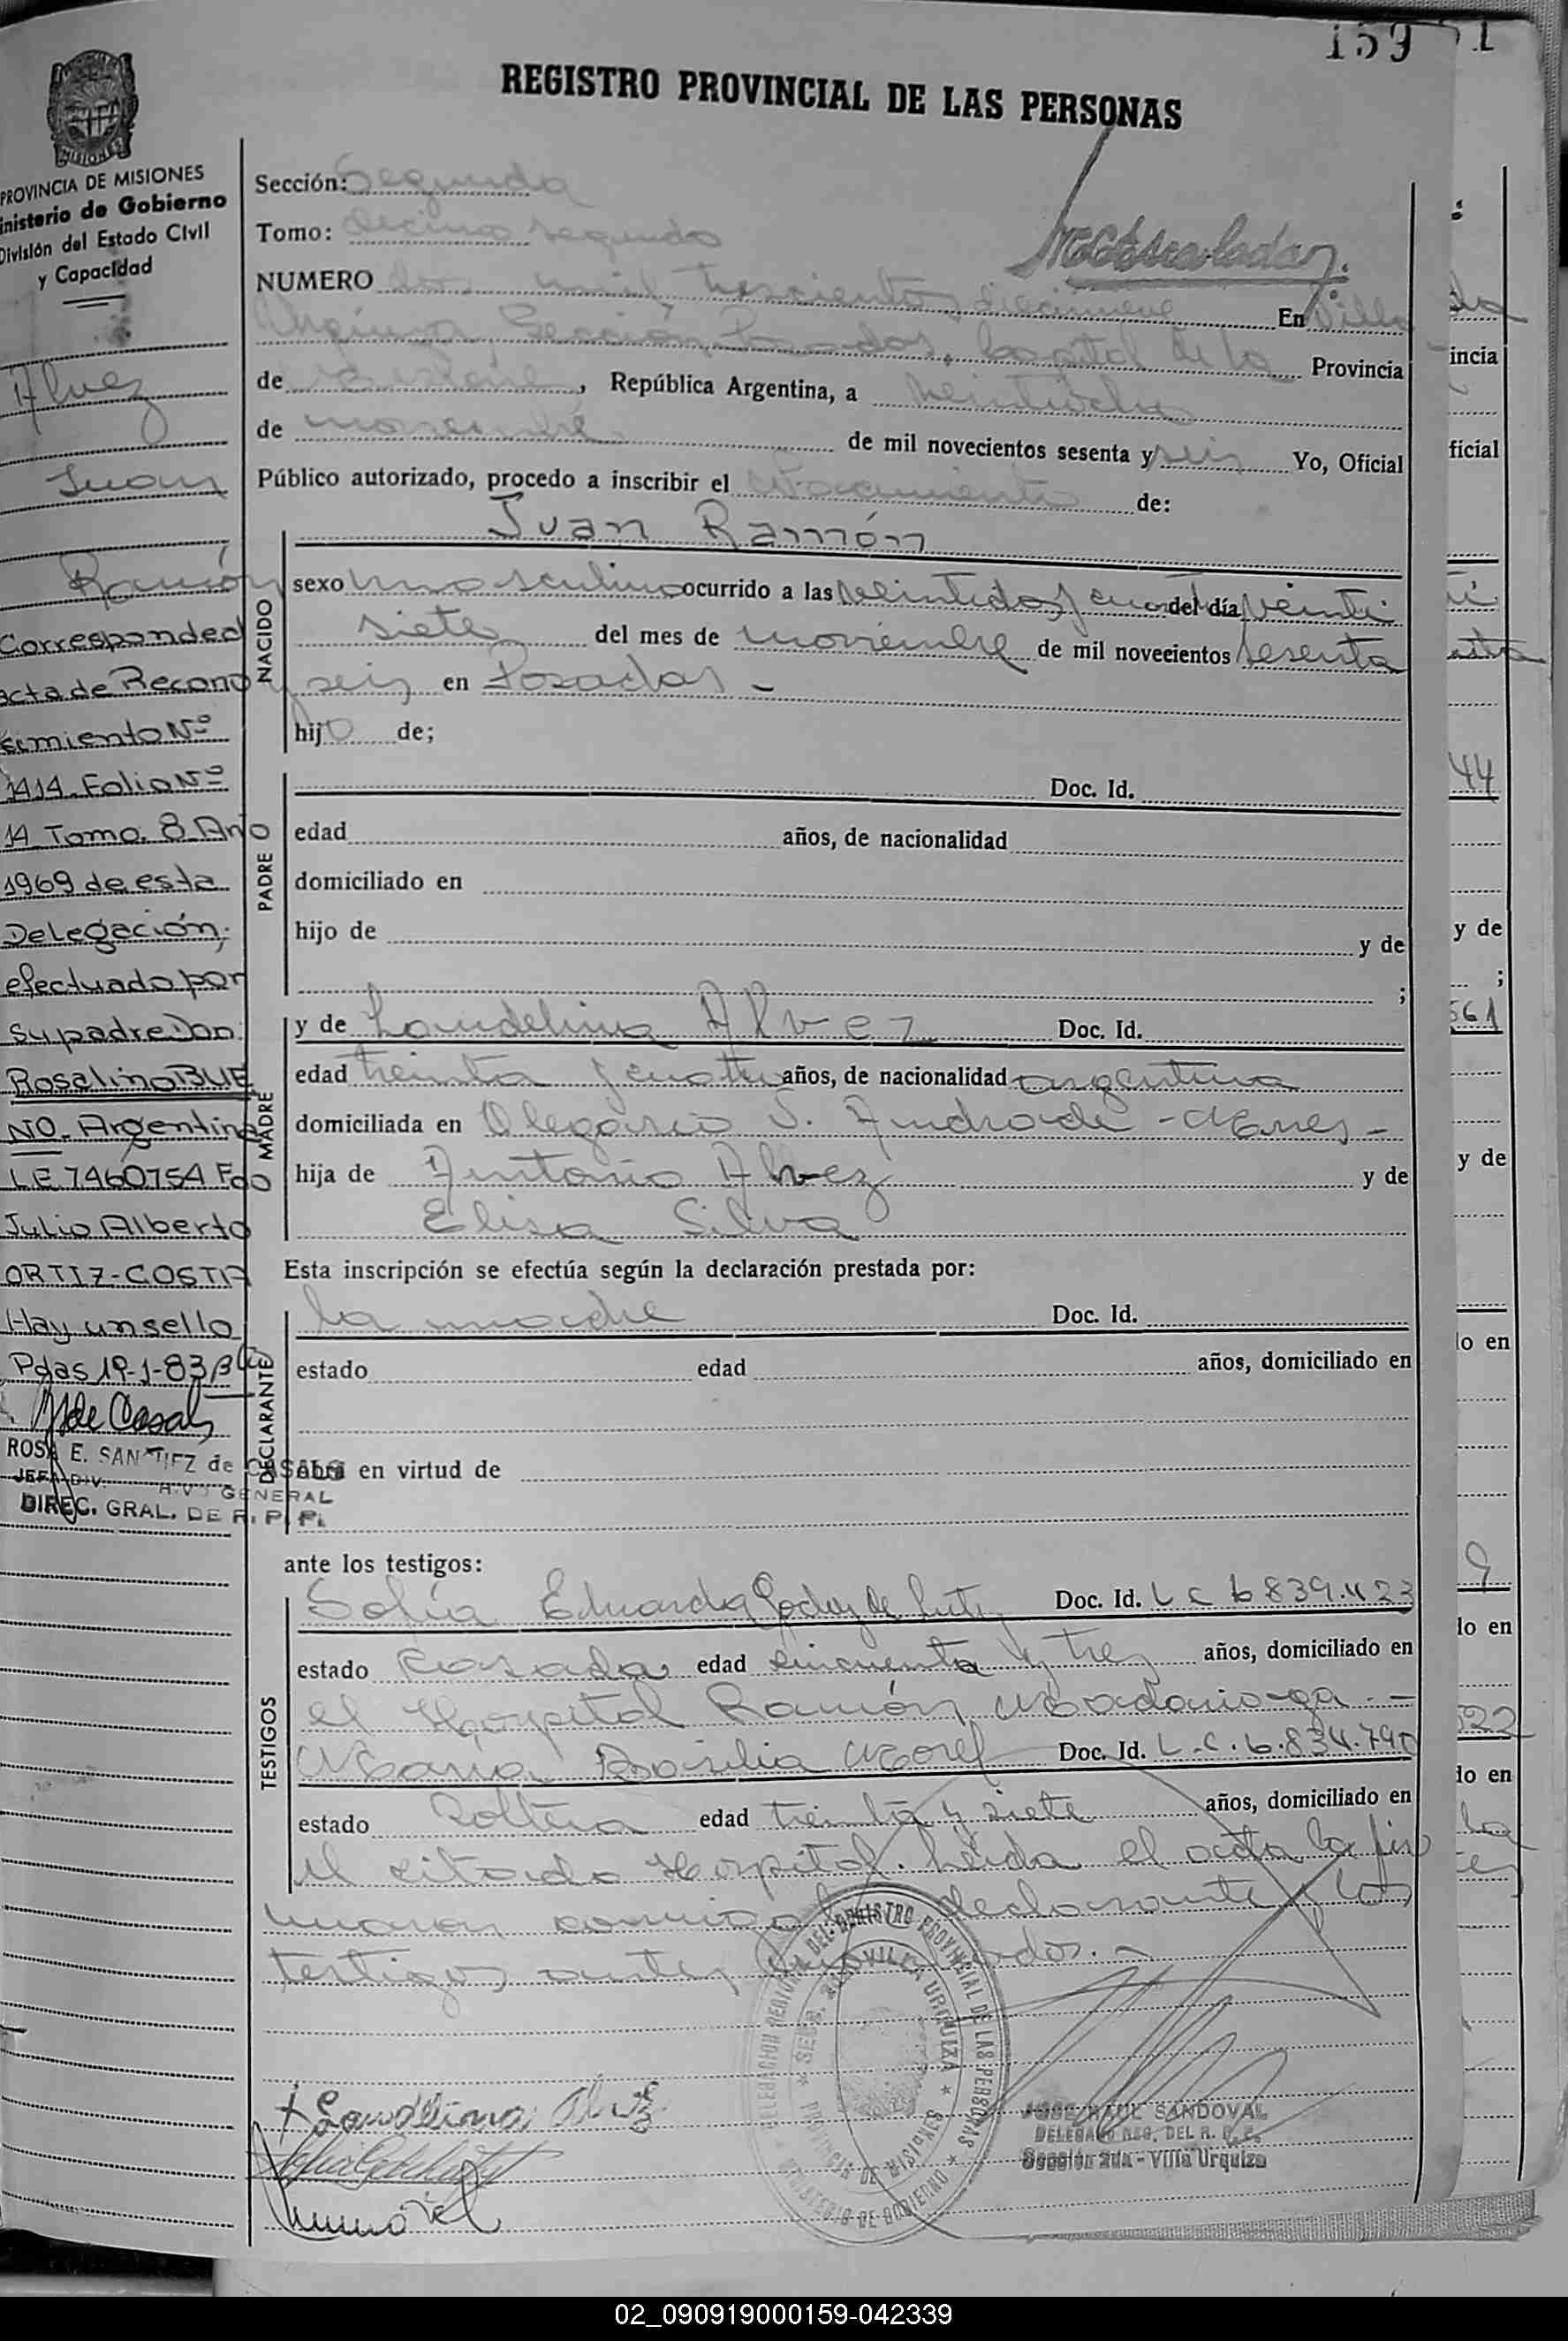 159
REGISTRO PROVINCIAL DE LAS PERSONAS
MISIONES
PROVINCIA DE MISIONES
inisterio de Gobierno
División del Estado Civil
y Capacidad
Alvez
Juan
Ramón
Correspondeal
acta de Recono
simiento Nº
1414 Folio Nº
14 Tomo. 8 Año
1969 de esta
Delegación,
efectuado por
su padre Don:
Rosalino BUE
NO. Argentino
LE 7460754 Fdo
Julio Alberto
ORTIZ-COSTA
Hay un sello
Pdas 19-1-83
de Casals
ROSA E. SANCHEZ de CASALS
JEFA DIV. GENERAL
DIREC. GRAL. DE R. P. P.
Sección: Segunda
Tomo: décimo segundo
NUMERO dos mil trescientos diecinueve En Villa
Urquiza Sección Posadas, Capital de la Provincia
de Misiones, República Argentina, a veintiocho
de noviembre de mil novecientos sesenta y seis Yo, Oficial
Público autorizado, procedo a inscribir el Nacimiento de:
Juan Ramón
NACIDO
sexo masculino ocurrido a las veintidos y cuarto del día veinti
siete del mes de noviembre de mil novecientos sesenta
y seis en Posadas -
hijo de;
PADRE
Doc. Id.
edad años, de nacionalidad
domiciliado en
hijo de y de
;
MADRE
y de Laudelina Alvez Doc. Id.
edad treinta y cuatro años, de nacionalidad argentina
domiciliada en Olegario V. Andrade - Mnes -
hija de Antonio Alvez y de
Elisa Silva
Esta inscripción se efectúa según la declaración prestada por:
DECLARANTE
la madre Doc. Id.
estado edad años, domiciliado en
obra en virtud de
ante los testigos:
TESTIGOS
Sofía Eduarda Godoy de Doc. Id. L C 6839.423
estado casada edad cincuenta y tres años, domiciliado en
el Hospital Ramón Madariaga. -
María Basilia Morel Doc. Id. L.C. 6.834.790
estado soltera edad treinta y siete años, domiciliado en
el citado Hospital. Leída el acta la fir
maron conmigo la declarante y los
testigos antes
DELEGACION REGIONAL DEL REGISTRO PROVINCIAL DE LAS PERSONAS
VILLA URQUIZA
PROVINCIA DE MISIONES
MINISTERIO DE GOBIERNO
Laudelina Alvez
JOSE RAUL SANDOVAL
DELEGADO REG. DEL R. P. P.
Sección 2da - Villa Urquiza
incia
ficial
44
y de
;
561
y de
lo en
9
lo en
522
lo en
02_090919000159-042339